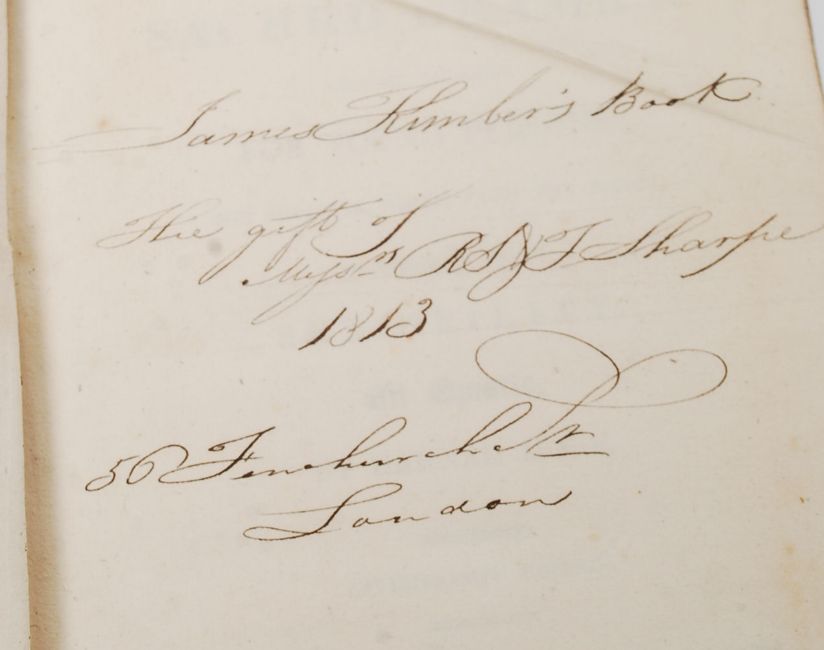 James Kimber's Book
The gift of
Messrs R S & J Sharpe
1813
56 Fenchurch St
London